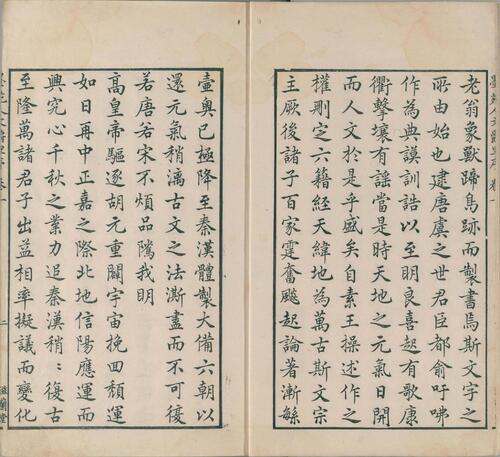 老翁象獸蹄鳥跡而製書焉斯文字之
所由始也逮唐虞之世君臣都俞吁咈
作為典謨訓誥以至明良喜起有歌康
衢擊壤有謡當是時天地之元氣日開
而人文於是乎盛矣自素王操述作之
權刪定六籍經天緯地為萬古斯文宗
主厥後諸子百家霆奮飈起論著漸繇
壼奥已極降至秦漢體製大備六朝以
還元氣稍漓古文之法澌盡而不可復
若唐若宋不煩品隲我明
高皇帝驅逐胡元重闢宇宙挽回頽運
如日再中正嘉之際北地信陽應運而
興究心千秋之業力追秦漢稍稍復古
至隆萬諸君子出益相率擬議而變化
二
滋蘭堂